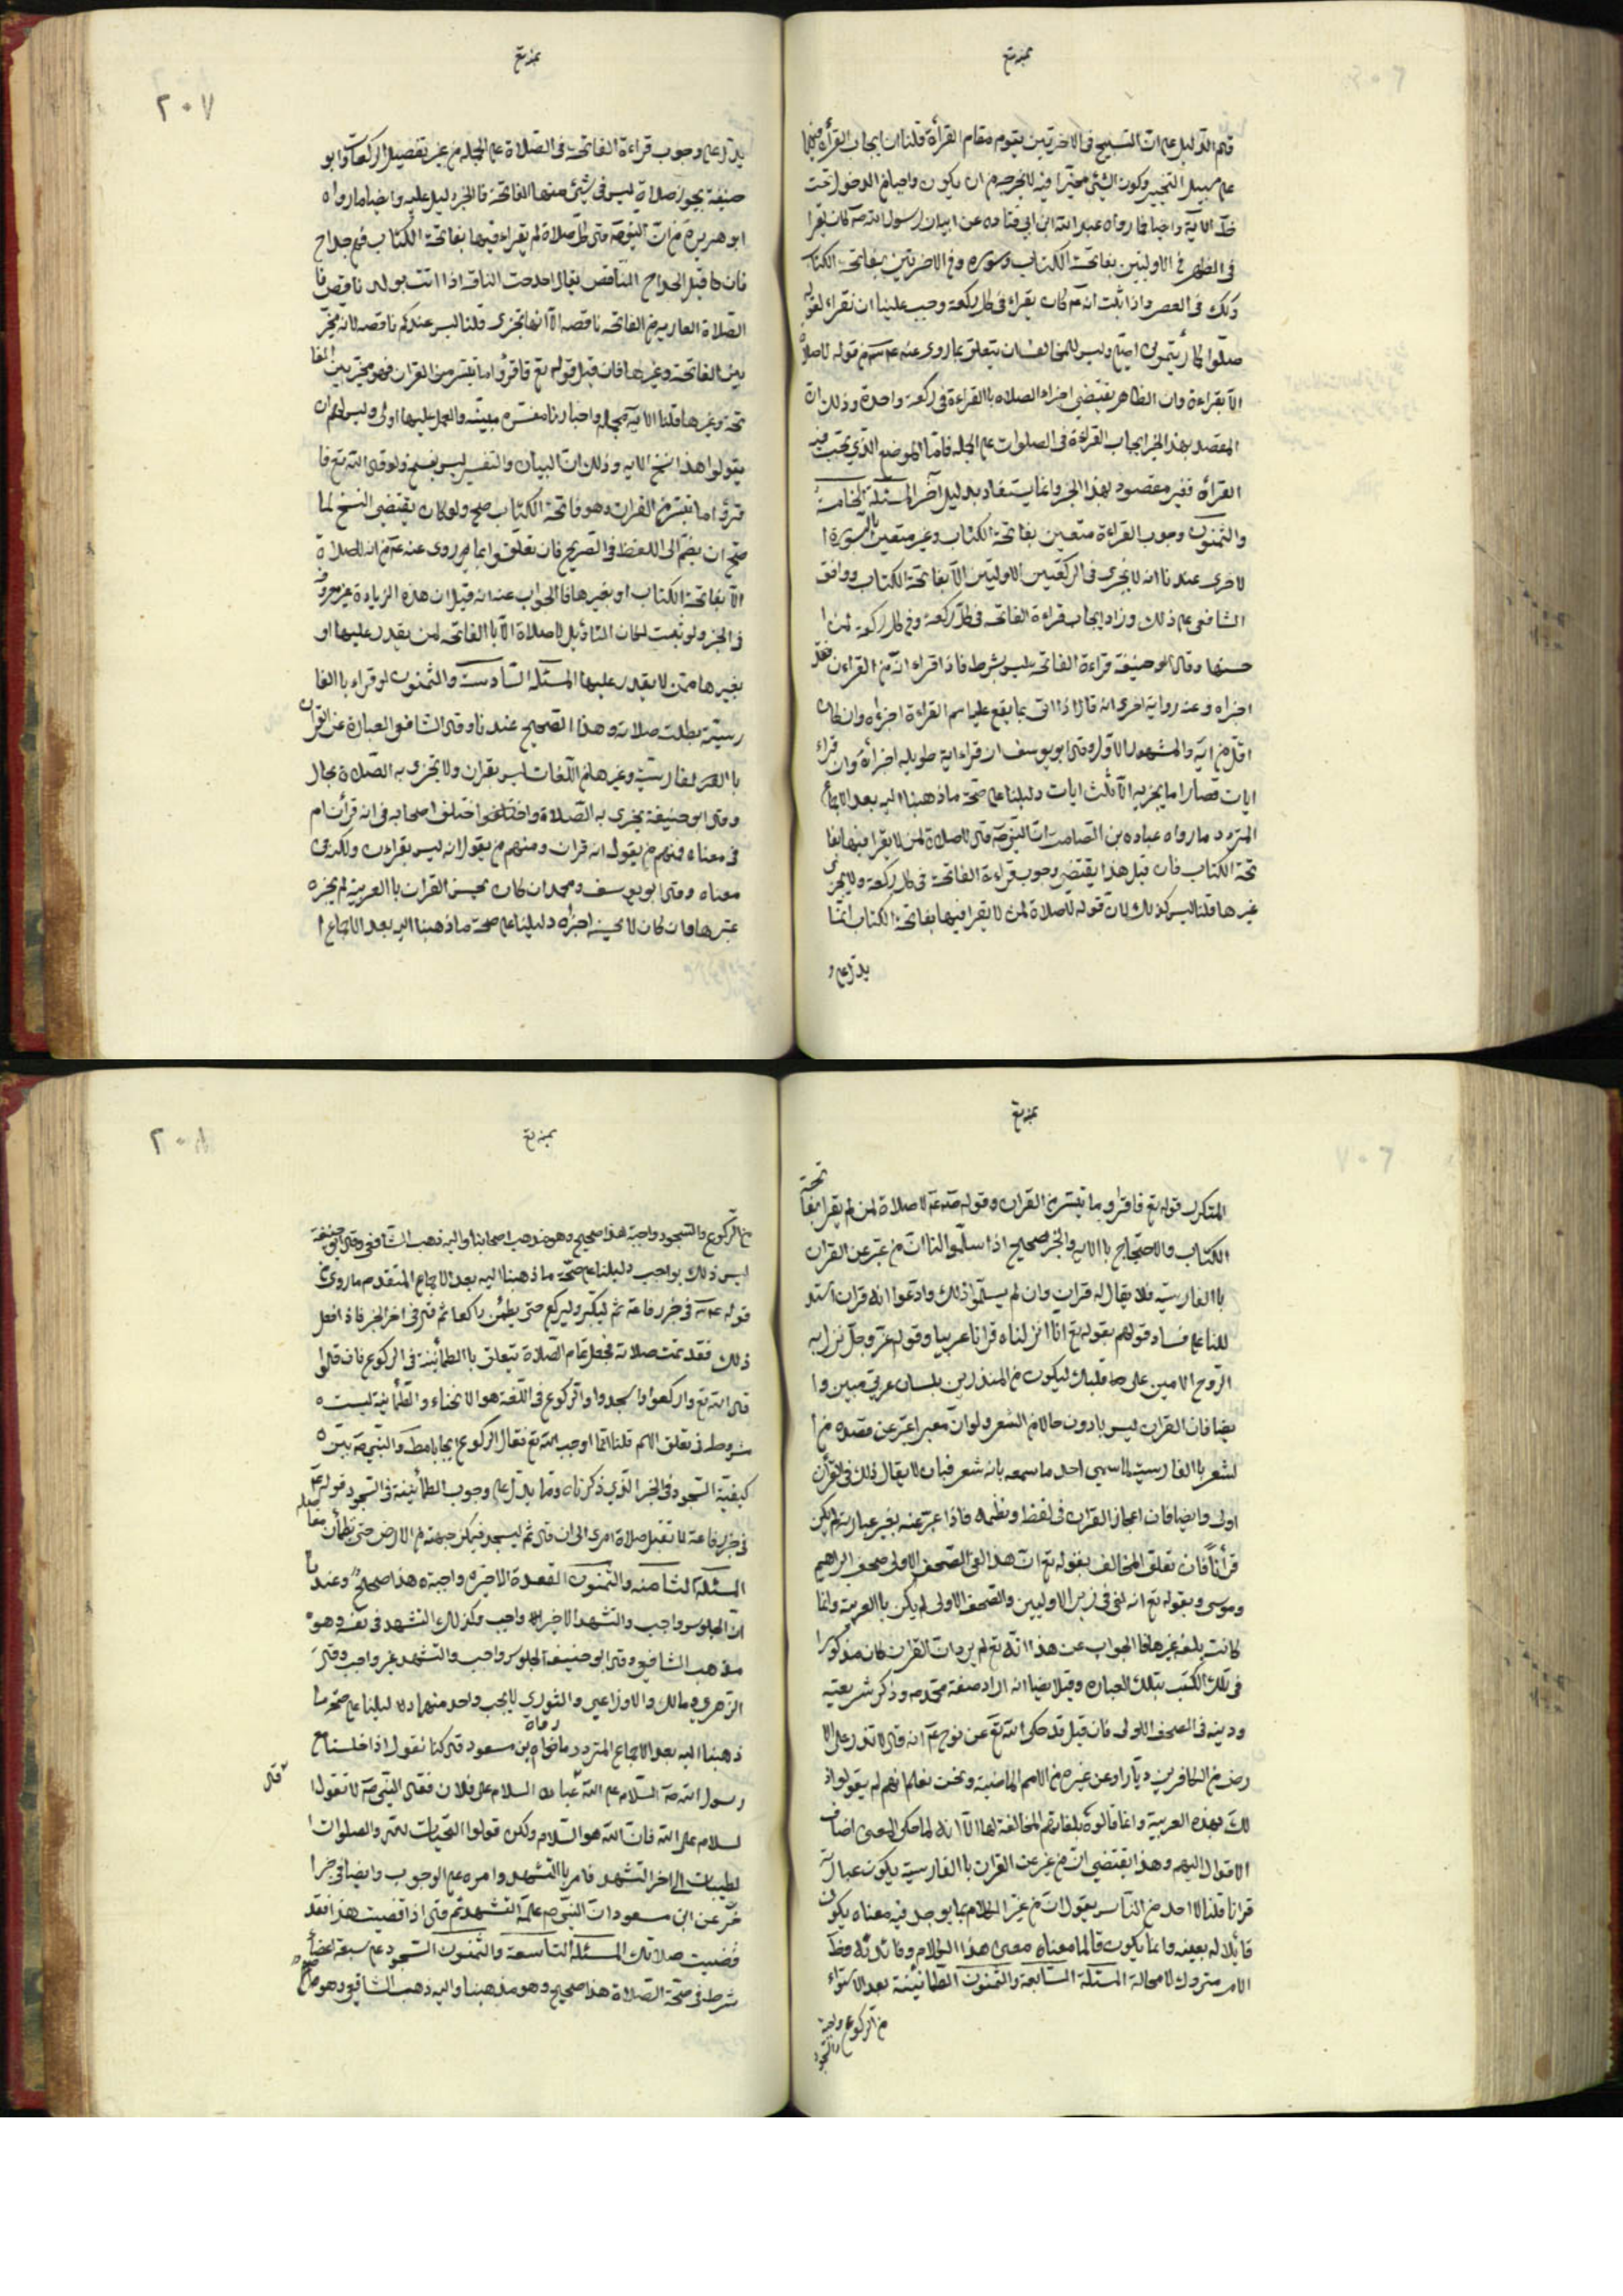 بمنه تع
قام الدليل على ان التسبيح في الاخرتين يقوم مقام القرأة قلنا ان ايجاب القرأة فيهما
على سبيل التخيير وكون الشئ مخيرا فيه لا يخرجه من ان يكون واجبا في الدخول تحت
الاية وايضا فما رواه عبد الله ابن ابي قتاده عن ابيه ان رسول الله صه كان يقرا
في الظهر في الاوليين بفاتحة الكتاب وسورة وفي الاخرتين بفاتحة الكتاب
وكذلك في العصر واذا ثبت انه عم كان يقراء في كل ركعة وجب علينا ان نقراء لقوله
صلوا كما رأيتموني اصلي وليس للمخالف ان يتعلق بما روى عنه من قوله لاصلاة
الا بقراءة وان الظاهر يقتضي اجزاء الصلاه باالقراءة في ركعة واحدة وذلك ان
المقصد بهذا الخبر ايجاب القراءة في الصلوات على الجملة فاما الموضع الذي تجب فيه
القرأة فغير مقصود بهذا الخبر وانما يستفاد بدليل آخر المسئلة الخامسة
والثمنون وجوب القراءة متعين بفاتحة الكتاب وغير متعين بالسورة ا
لاخرى عندنا انه لا يجزى في الركعتين الاوليين الا بفاتحة الكتاب ووافق
الشافعي على ذلك وزاد ايجاب قراءة الفاتحه في كل ركعة وفي كل ركعة لمن ا
حسنها وقال ابو حنيفة قراءة الفاتحة ليس بشرط فاذا قراء اية من القراءن فقط
اجزاه وعنه رواية اخرى انه قال اذا اتى بما يقع عليه اسم القراءة اجزءاه وان كان
اقل من اية والمشهور الاول وقال ابو يوسف ان قراء اية طويله اجزأة وان قراء
ايات قصارا ما يجزيه الا ثلث ايات دليلنا على صحة ماذهبنا اليه بعد الاجماع
المتردد مارواه عباده بن الصامت ان النبي صه قال لاصلاة لمن لا يقرا فيها بفا
تحة الكتاب فان قيل هذا يقتضي وجوب قراءة الفاتحة في كل ركعة ولا يجزى
غيرها قلنا ليس كذلك لان قوله لاصلاة لمن لا يقرا فيها بفاتحة الكتاب انما
يدل على و
بمنه تع
٢٠٧
يدل على وجوب قراءة الفاتحة في الصلاة على الجملة من غير تفصيل الركعات وابو
حنيفة يجوز صلاة ليس في شئ منها الفاتحة فالخبر دليل عليه وايضا مارواه
ابو هريرة من ان النبي صه قال كل صلاة لم يقراء فيها بفاتحة الكتاب فهي خداج
فان قيل الخداج الناقص يقال اخدجت الناقه اذا اتت بولد ناقص فا
الصلاة العارية من الفاتحه ناقصه الا انها تجزى قلنا ليس عندكم ناقصه لانه مخير
بين الفاتحة وغيرها فان قيل قوله تع فاقرؤا ما تيسر من القران فهو مخير بين الفا
تحه وغيرها قلنا الاية مجمله واخبارنا مفسره مبينه والعمل عليها اولى وليس لهم ان
يقولوا هذا نسخ الاية وذلك ان البيان والتفسير ليس بنسخ ولو قال الله تع فا
قرؤا ما تيسر من القران وهو فاتحة الكتاب صح ولو كان يقتضي النسخ لما
صح ان يضم الى اللفظ في الصريح فان تعلقوا بما روى عنه عم من انه لاصلاة
الا بفاتحة الكتاب او بغيرها فالجواب عنه انه قيل ان هذه الزيادة غير معروفه
في الخبر ولو ثبت لكان التأويل لاصلاة الا باالفاتحه لمن يقدر عليها او
بغيرها ممن لا يقدر عليها المسئلة السادسة والثمنون لو قراء باالفا
رسية بطلت صلاته وهذا الصحيح عندنا وقال الشافعي العبارة عن القران
باالفارسية وغيرها من اللغات ليس بقران ولا تجزى به الصلاة بحال
وقال ابو حنيفة يجزى به الصلاة واختلف اصحابه في انه قرأن ام
في معناه فمنهم من يقول انه قران ومنهم من يقول انه ليس بقراءن ولكن في
معناه وقال ابو يوسف ومحمد ان كان يحسن القران باالعربية لم يجزه
غيرها وان كان لا يحسنه اجزاه دليلنا على صحة ماذهبنا اليه بعد الاجماع ا
بمنه تع
المتكرر قوله تع فاقروا ما تيسر من القران وقوله صه لاصلاة لمن لم يقرا بفاتحة
الكتاب والاحتجاج باالاية والخبر صحيح اذا سلموا لنا ان من عبر عن القران
باالفارسية فلا يقال له قران وان لم يسلموا ذلك وادعوا انه قران استد
للنا على فساد قولهم بقوله تع انا انزلناه قرانا عربيا وقوله عز وجل نزل به
الروح الامين على قلبك ليكون من المنذرين بلسان عربي مبين وا
يضا فان القران ليس بادون حالا من الشعر ولو ان معبرا عبر عن قصيده من ا
لشعر باالفارسية لما سمى احد ما سمعه بانه شعر فبان لا يقال ذلك في القرأن
اولى وايضا فان اعجاز القران في لفظه ونظمه فاذا عبر عنه بغير عبارته لم يكن
قرأنا فان تعلق المخالف بقوله تع ان هذا لفي الصحف الاولى صحف ابراهيم
وموسى وبقوله تع انه لفي زبر الاولين والصحف الاولى لم يكن باالعربية وانما
كانت بلغة غيرها فالجواب عن هذا انه تع لم يرد ان القران كان مذكورا
في تلك الكتب بتلك العباره وقيل ايضا انه اراد صفة محمد صه وذكر شريعته
ودينه في الصحف الاولى فان قيل قد حكى الله تع عن نوح عم انه قال لا تذر على الا
رض من الكافرين ديارا وعن غيره من الامم الماضية ونحن نعلم انهم لم يقولوا ذ
لك بهذه العربية وانما قالوه بلغاتهم المخالفة لها الا انه لما حكى المعنى اضاف
الاقوال اليهم وهذا يقتضي ان من عبر عن القران باالفارسية يكون عبارته
قرانا قلنا لا احد من الناس يقول ان من غير الكلام بما يوجد فيه معناه يكون
قائلا له بعينه وانما يكون قائلا ما معناه معنى هذا الكلام وفائدته
الامر متروك لا محالة المسئلة السابعة والثمنون الطمانينة بعد الاستواء
من الركوع واجبة والسجود
بمنه تع
٢٠٨
من الركوع والسجود واجبة هذا صحيح وهو مذهب اصحابنا واليه ذهب الشافعي وقال ابو حنيفة
ليس ذلك بواجب دليلنا على صحة ما ذهبنا اليه بعد الاجماع المتقدم ماروى من
قوله في خبر رفاعة ثم ليكبر وليركع حتى يطمئن راكعا ثم قال في اخر الخبر فاذا فعل
ذلك فقد تمت صلاته فجعل تمام الصلاة يتعلق باالطمأنينة في الركوع فان قالوا
قال الله تع واركعوا واسجدوا والركوع في اللغة هو الانحناء والطمأنينة ليست
شرط في تعلق الاسم قلنا انما اوجب الله تع الركوع ايجابا والنبي صه بين
كيفية السجود في الخبر الذي ذكرناه ومما يدل على وجوب الطمأنينة في السجود قوله عم
في خبر رفاعة لا تقبل صلاة امرئ الى ان قال ثم ليسجد فيمكن جبهته من الارض حتى تطمأن مفاصله
المسئلة الثامنه والثمنون القعدة الاخيره واجبة هذا صحيح وعندنا
ان الجلوس واجب والتشهد الاخير واجب وكذلك التشهد في نفسه وهو
مذهب الشافعي وقال ابو حنيفة الجلوس واجب والتشهد غير واجب وقال
الزهري ومالك والاوزاعي والثوري لا يجب واحد منهما دليلنا على صحة ما
ذهبنا اليه بعد الاجماع المتردد ما رواه بن مسعود قال كنا نقول اذا جلسنا مع
رسول الله صه السلام على الله قبل عباده السلام على فلان فقال النبي صه لا تقولوا
لسلام على الله فان الله هو السلام ولكن قولوا التحيات لله والصلوات ا
لطيبات الى اخر التشهد فامر باالتشهد وامره على الوجوب وايضا في خبرا
خر عن ابن مسعود ان النبي صم علمه التشهد ثم قال اذا قضيت هذا فقد
قضيت صلاتك المسئلة التاسعة والثمنون السجود على سبعة اعضاء
شرط في صحة الصلاة هذا صحيح وهو مذهبنا واليه ذهب الشافعي وهو